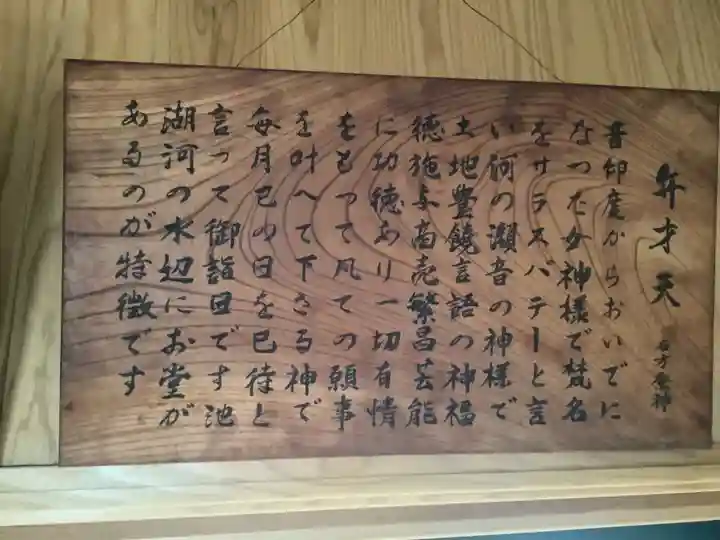 弁才天
昔印度からおいでに
なつた女神様で梵名
をサラスバテーと言
い河の瀬音の神様で
土地豊饒言語の神福
徳施与商売繁昌芸能
に功徳あり一切有情
をもつて凡ての願事
を叶へて下さる神で
毎月巳の日を巳待と
言って御詣日です池
湖河の水辺にお堂が
あるのが特徴です